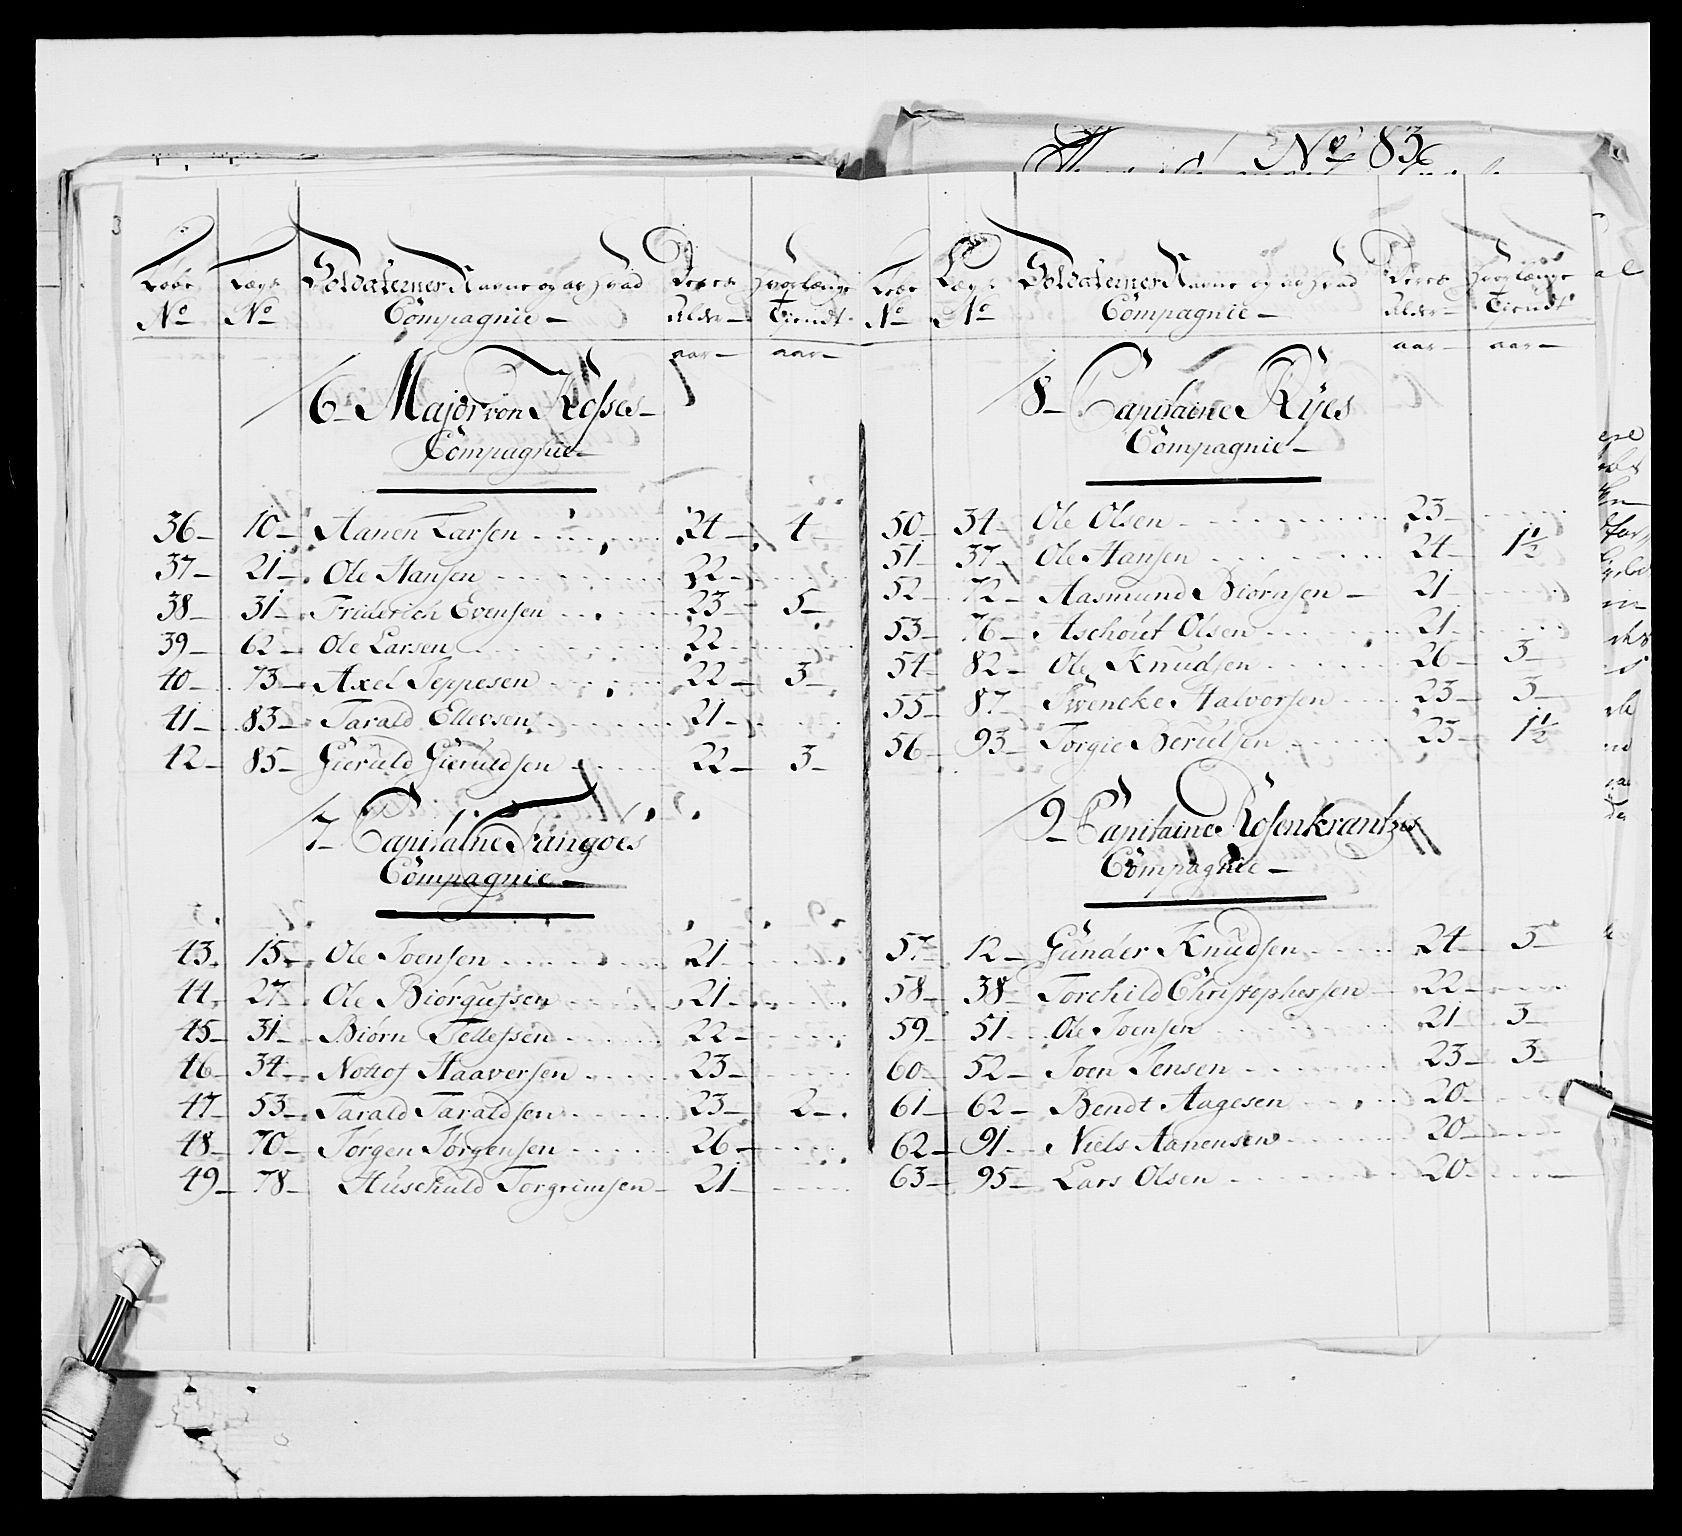 No 83
Løbe Lægs Soldaternes Navne og af hvad Deres Hvorlænge
No No Compagnie – Alder – Tiendt
aar – aar –
6 – Major von Kosses –
Compagnie –
36 – 10 – Aanen Larsen 24 – 4 –
37 – 21 – Ole Hansen 22 –
38 – 31 – Friderich Evensen 23 5 –
39 – 62 – Ole Larsen 22 –
40 – 73 – Axel Jeppesen 22 – 3 –
41 – 83 – Tarald Ellevsen 21 –
42 – 85 – Gieruld Gieruldsen 22 – 3 –
7 – Capitaine Fangoes
Compagnie –
43 15 – Ole Joensen 21 –
44 27 Ole Biørgufsen 21 –
45 – 31 – Biørn Tellefsen 22 –
46 34 – Nottof Haaversen 23 –
47 53 – Tarald Taraldsen 23 – 2 –
48 – 70 – Jørgen Jørgensen 26 –
49 – 78 – Huschuld Torgrimsen – 21 –
Løbe Lægs Soldaternes Navne og af hvad Deres Hvorlænge
No No Compagnie – Alder – Tiendt
aar – aar –
8 – Capitaine Ryes
Compagnie –
50 – 34 – Ole Olsen 23 –
51 – 37 – Ole Hansen 24 – 1½
52 – 72 – Aasmund Biørnsen – 21 –
53 – 76 – Aschout Olsen 21
54 – 82 – Ole Knudsen 26 – 3 –
55 – 87 – Swencke Halvorsen 23 – 3 –
56 – 93 – Torgie Berulsen 23 – 1½
9 – Capitaine Rosenkrantzes
Compagnie –
57 – 12 – Gunder Knudsen 24 – 5 –
58 – 38 – Torchild Christophersen – 22 –
59 – 51 Ole Joensen 21 3 –
60 52 – Joen Jensen 23 – 3 –
61 – 62 – Bendt Aagesen 20 –
62 – 91 Niels Aanensen 20 –
63 – 95 – Lars Olsen 20 –